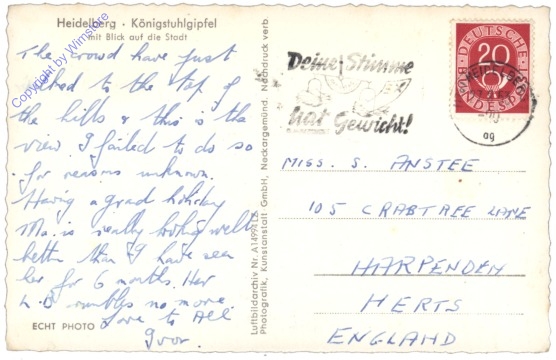 Heidelberg · Königstuhlgipfel
mit Blick auf die Stadt
The crowd have just
to the top of
the hills & this is the
view I failed to do so
for reasons unknown.
Having a grand holiday
Ma. is really looking well &
better than I have seen
her for 6 months. Her
rumbles no more
Love to All
Ivor.
ECHT PHOTO
Copyright by Wimstore
Luftbildarchiv Nr.
Photografik, Kunstanstalt GmbH, Neckargemünd. Nachdruck verb.
Deine Stimme
hat Gewicht!
DEUTSCHE
BUNDESPOST
20
HEIDELBERG
ag
MISS. S. ANSTEE
105 CRABTREE LANE
HARPENDEN
HERTS
ENGLAND